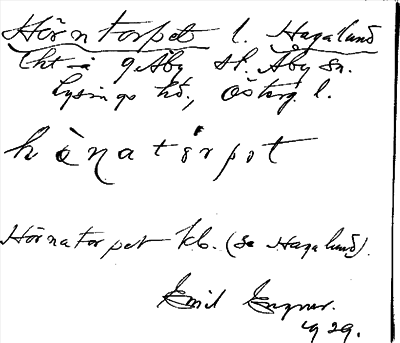 Hörntorpet l. Hagalund
Lht å 9 Åby sk. Åby sn.
Lysings hd., Östg. l.
hö̀natòrpət
Hörnatorpet kb. (se Hagalund).
Emil
1929.